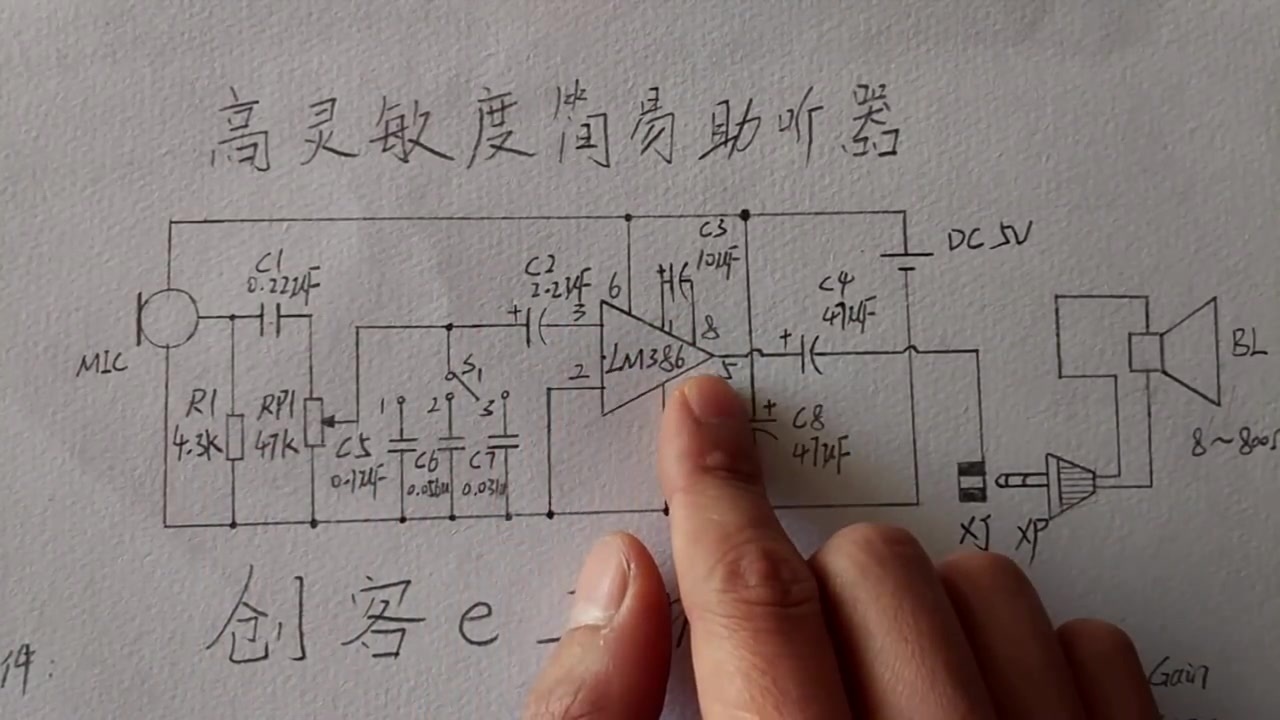 高灵敏度简易助听器
DC 5V
C1
0.22μF
C2
2.2μF
C3
10μF
C4
47μF
6
3
+
+
1
8
+
MIC
LM386
5
2
S1
BL
R1
4.3K
RP1
47K
1
2
3
C5
C6
C7
+
C8
47μF
8~800
XJ
XP
创客e
件:
Gain